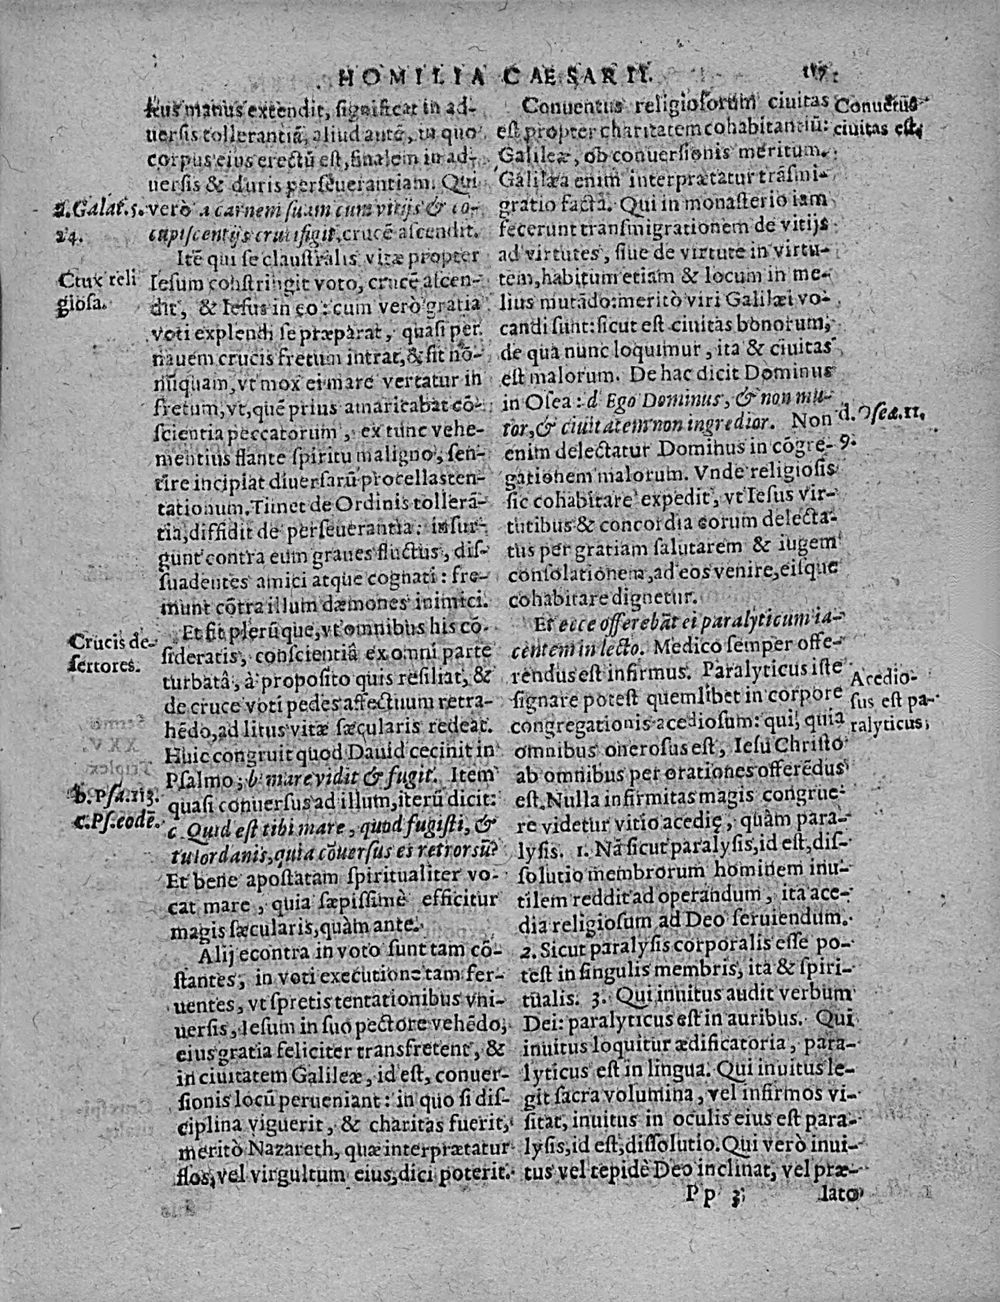 HOMILIA CAESARII. 117.
sius manus extendit, significat in ad-
uersis tollerantiã, aliud autẽ, in quo
corpus eius erectũ est, finalem in ad-
uersis & duris perseuerantiam. Qui
verò a carnem suam cum vitijs & co-
cupiscentijs crucifigit, crucẽ ascendit.
Itẽ qui se claustralis vitæ propter
Iesum constringit voto, crucẽ ascen-
dit, & Iesus in eo: cum verò gratia
voti explendi se præparat, quasi per
nauem crucis fretum intrat, & fit nõ-
nũquam, vt mox ei mare vertatur in
fretum, vt, quẽ prius amaricabat cõ-
scientia peccatorum, ex tunc vehe-
mentius flante spiritu maligno, sen-
tire incipiat diuersarũ procellas ten-
tationum. Timet de Ordinis tollerã-
tia, diffidit de perseuerantia: insur-
gunt contra eum graues fluctus, dis-
suadentes amici atque cognati: fre-
munt cõtra illum dæmones inimici.
Et fit plerũque, vt omnibus his cõ-
sideratis, conscientiâ ex omni parte
turbatâ, à proposito quis resiliat, &
de cruce voti pedes affectuum retra-
hẽdo, ad litus vitæ sæcularis redeat.
Huic congruit quod Dauid cecinit in
Psalmo; b mare vidit & fugit. Item
quasi conuersus ad illum, iterũ dicit:
c Quid est tibi mare, quod fugisti, &
tu Iordanis, quia cõuersus es retrorsũ?
Et bene apostatam spiritualiter vo-
cat mare, quia sæpissimè efficitur
magis sæcularis, quàm ante.
Alij econtra in voto sunt tam cõ-
stantes, in voti executione tam fer-
uentes, vt spretis tentationibus vni-
uersis, Iesum in suo pectore vehẽdo,
eius gratia feliciter transfretent, &
in ciuitatem Galileæ, id est, conuer-
sionis locũ perueniant: in quo si dis-
ciplina viguerit, & charitas fuerit,
meritò Nazareth, quæ interprætatur
flos, vel virgultum eius, dici poterit.
a. Galat. 5.
24.
Crux reli
giosa.
Crucis de-
sertores.
b. Psa. 113.
c. Ps. eodẽ.
Conuentus religiosorum ciuitas
est propter charitatem cohabitantiũ:
Galileæ, ob conuersionis meritum.
Galilæa enim interprætatur trãsmi-
gratio facta. Qui in monasterio iam
fecerunt transmigrationem de vitijs
ad virtutes, siue de virtute in virtu-
tem, habitum etiam & locum in me-
lius mutãdo: meritò viri Galilæi vo-
candi sunt: sicut est ciuitas bonorum,
de qua nunc loquimur, ita & ciuitas
est malorum. De hac dicit Dominus
in Osea: d Ego Dominus, & non mu-
tor, & ciuitatem non ingredior. Non
enim delectatur Dominus in cõgre-
gationem malorum. Vnde religiosis
sic cohabitare expedit, vt Iesus vir-
tutibus & concordia eorum delecta-
tus per gratiam salutarem & iugem
consolationem, ad eos venire, eisque
cohabitare dignetur.
Et ecce offerebãt ei paralyticum ia-
centem in lecto. Medico semper offe-
rendus est infirmus. Paralyticus iste
signare potest quemlibet in corpore
congregationis acediosum: qui, quia
omnibus onerosus est, Iesu Christo
ab omnibus per orationes offerẽdus
est. Nulla infirmitas magis congrue-
re videtur vitio acedię, quàm para-
lysis. 1. Nã sicut paralysis, id est, dis-
solutio membrorum hominem inu-
tilem reddit ad operandum, ita ace-
dia religiosum ad Deo seruiendum.
2. Sicut paralysis corporalis esse po-
test in singulis membris, ita & spiri-
tualis. 3. Qui inuitus audit verbum
Dei: paralyticus est in auribus. Qui
inuitus loquitur ædificatoria, para-
lyticus est in lingua. Qui inuitus le-
git sacra volumina, vel infirmos vi-
sitat, inuitus in oculis eius est para-
lysis, id est, dissolutio. Qui verò inui-
tus vel tepidè Deo inclinat, vel præ-
Pp 3 lato
Conuẽtus
ciuitas est,
d. Oseæ. 11.
9.
Acedio-
sus est pa-
ralyticus,